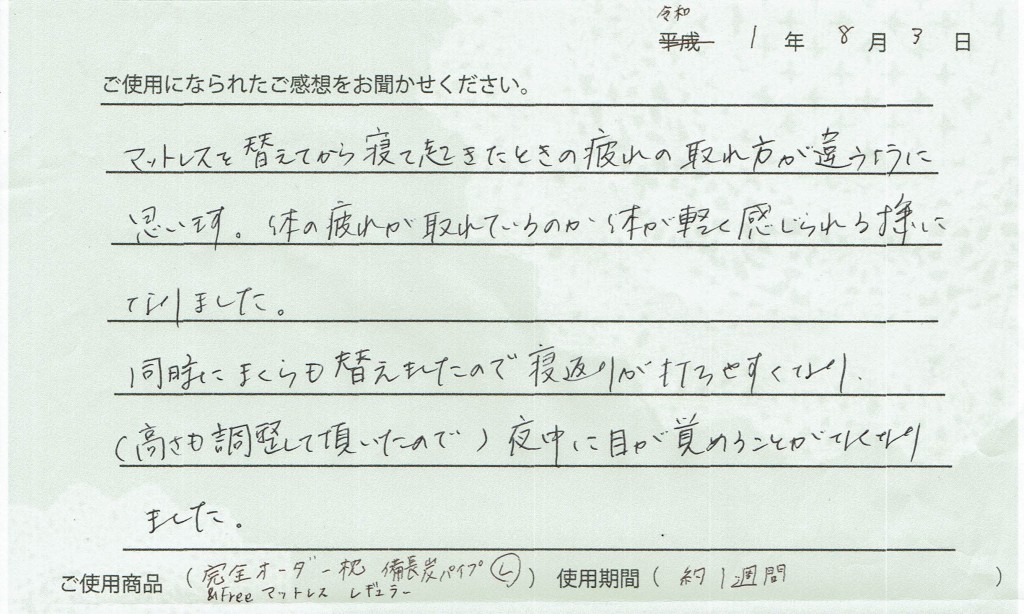 令和
平成 1年 8月 3日
ご使用になられたご感想をお聞かせください。
マットレスを替えてから寝て起きたときの疲れの取れ方が違うように
思います。体の疲れが取れているのか体が軽く感じられる様に
なりました。
同時にまくらも替えましたので寝返りが打ちやすくなり、
(高さも調整して頂いたので)夜中に目が覚めることがなくなり
ました。
ご使用商品(完全オーダー枕 備長炭パイプ Ⓛ) 使用期間(約1週間)
&Free マットレス レギュラー